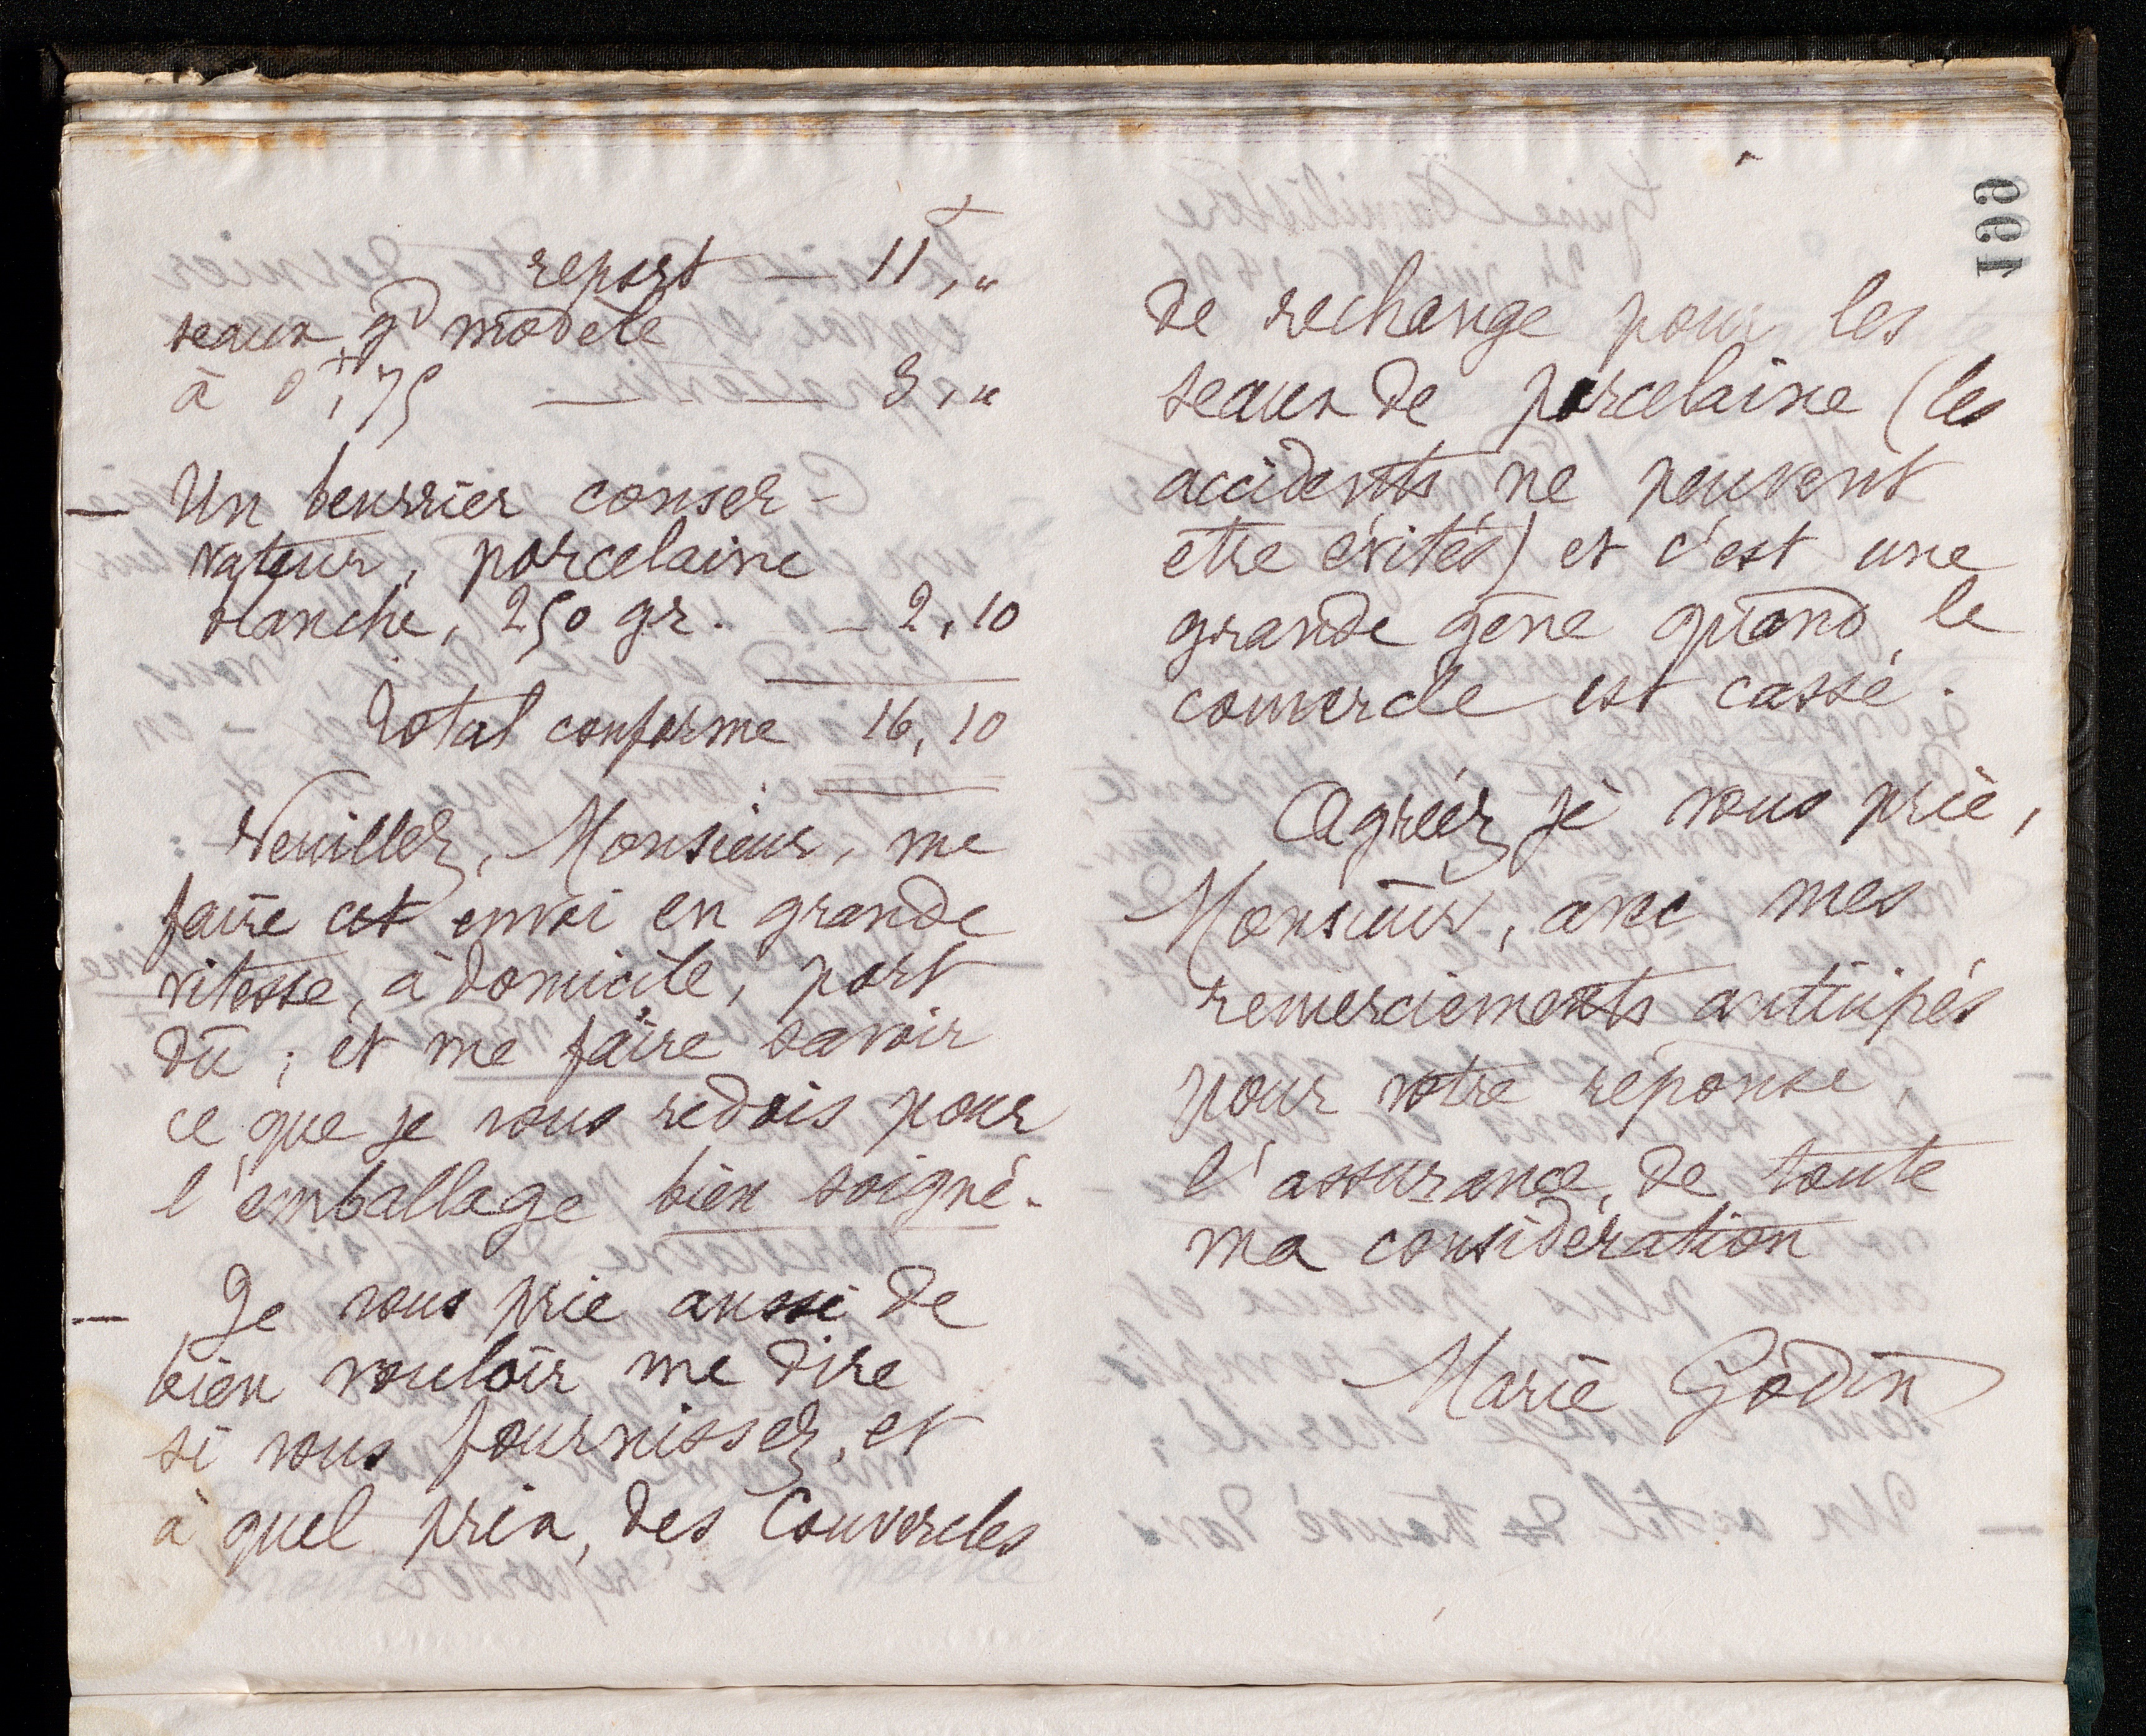 report — 11 f,"
seaux gd modèle
à 0 f,75 — — 3,"
— Un beurrier conser-
vateur, porcelaine
blanche, 250 gr. — 2,10
Total conforme 16,10
Veuillez, Monsieur, me
faire cet envoi en grande
vitesse, à domicile, port
dû ; et me faire savoir
ce que je vous redois pour
l'emballage bien soigné.
— Je vous prie aussi de
bien vouloir me dire
si vous fournissez, et
à quel prix, des couvercles
199
de rechange pour les
seaux de porcelaine (les
accidents ne peuvent
être évités) et c'est une
grande gêne quand le
couvercle est cassé.
Agréez je vous prie,
Monsieur, avec mes
remerciements anticipés
pour votre réponse,
l'assurance de toute
ma considération
Marie Godin